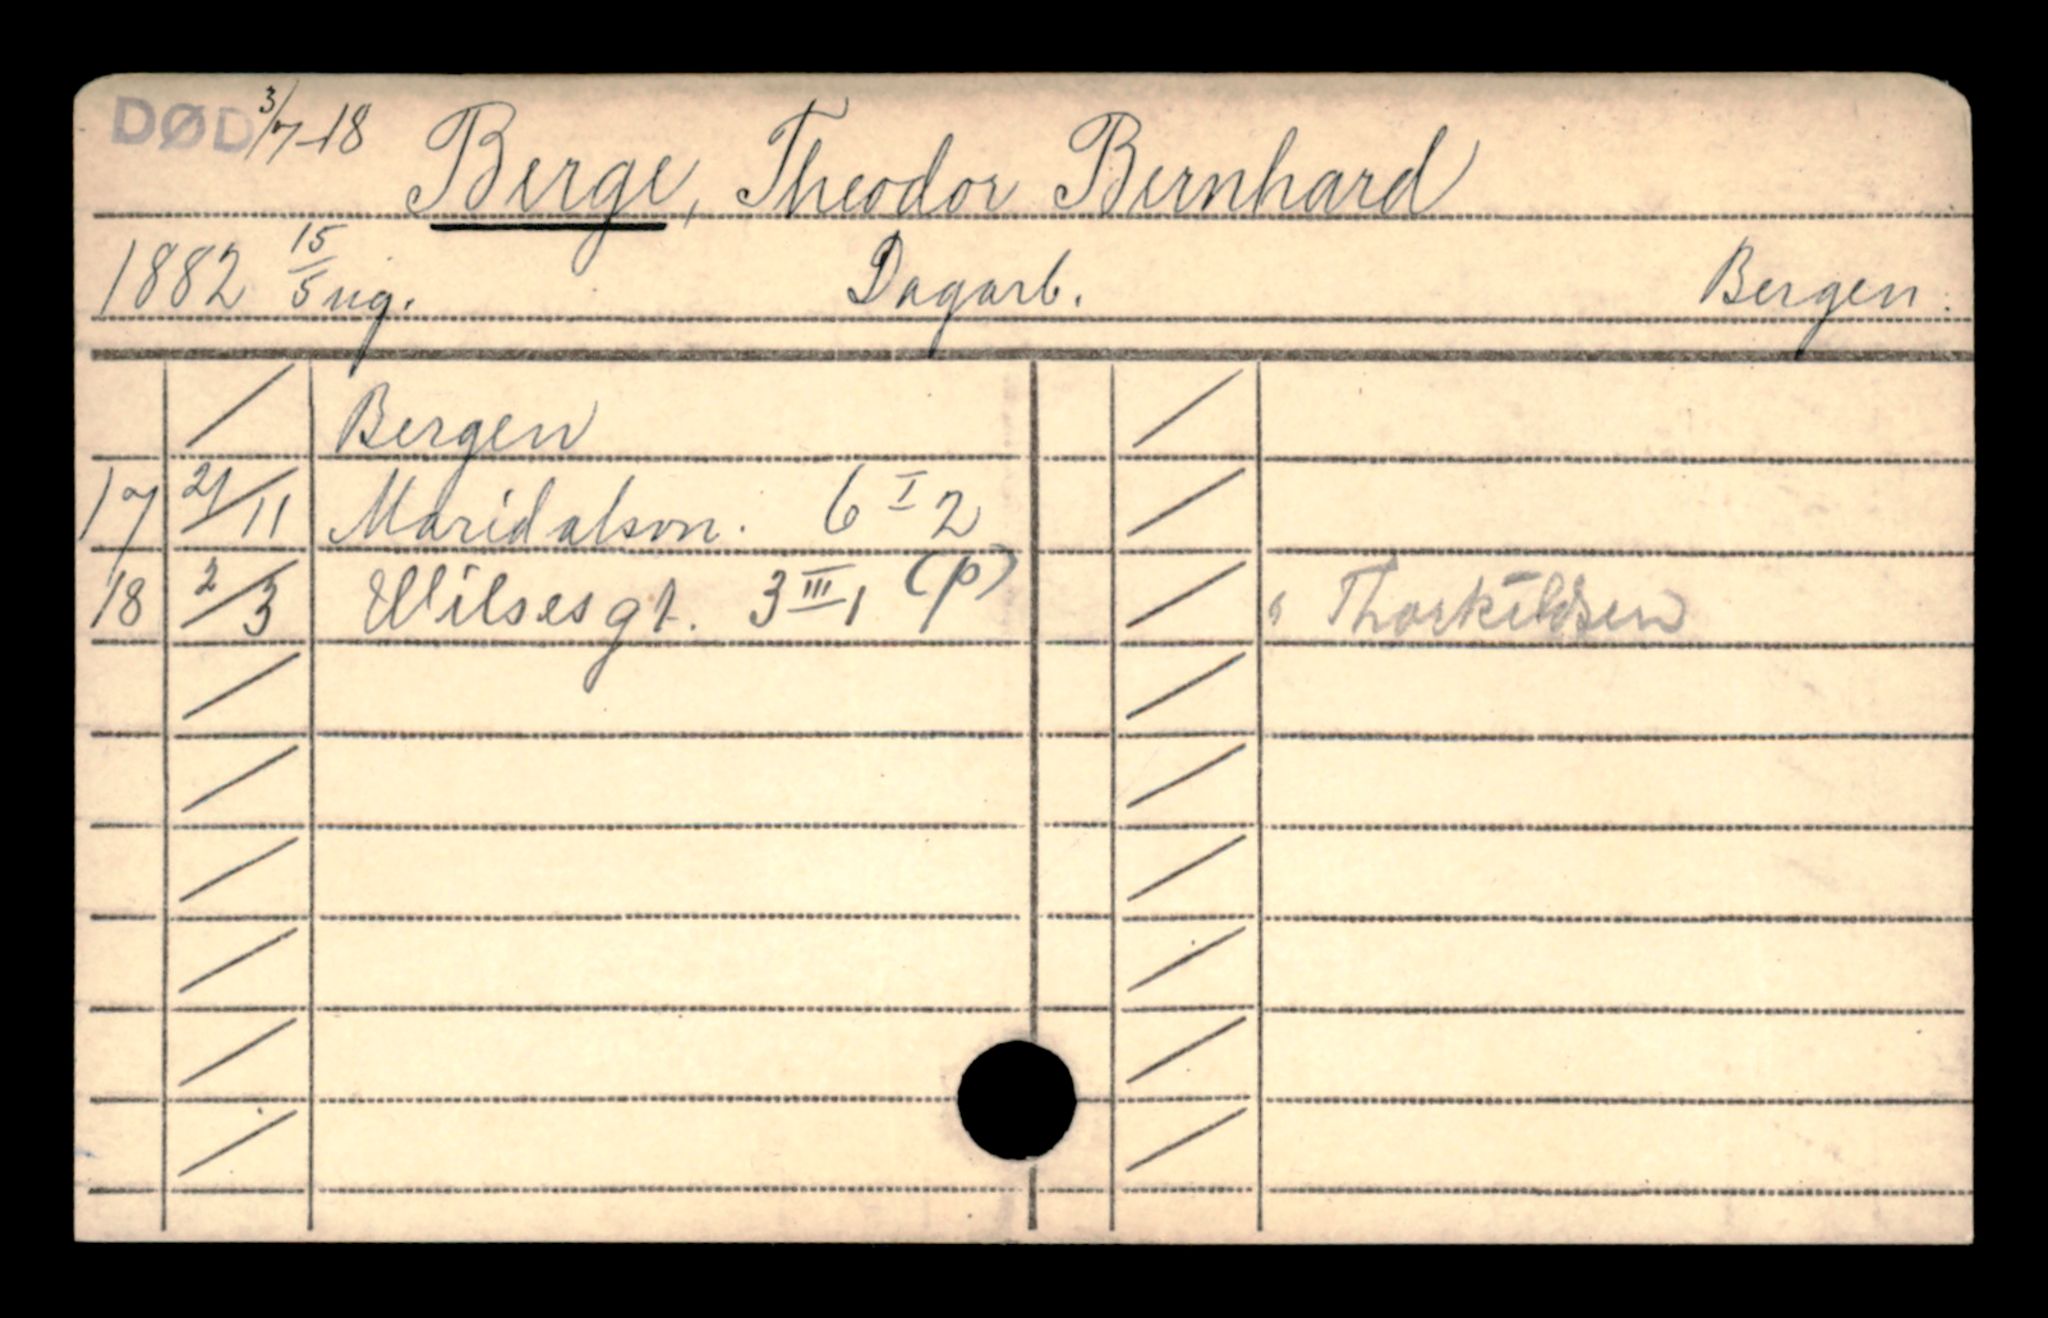 DØD 3/7-18 Berge, Theodor Bernhard
1882 15/5 ug. Dagarb. Bergen.
Bergen
17 21/11 Maridalsvn. 6 I 2
18 2/3 Wilsesgt. 3 III 1 (p) Thorkildsen